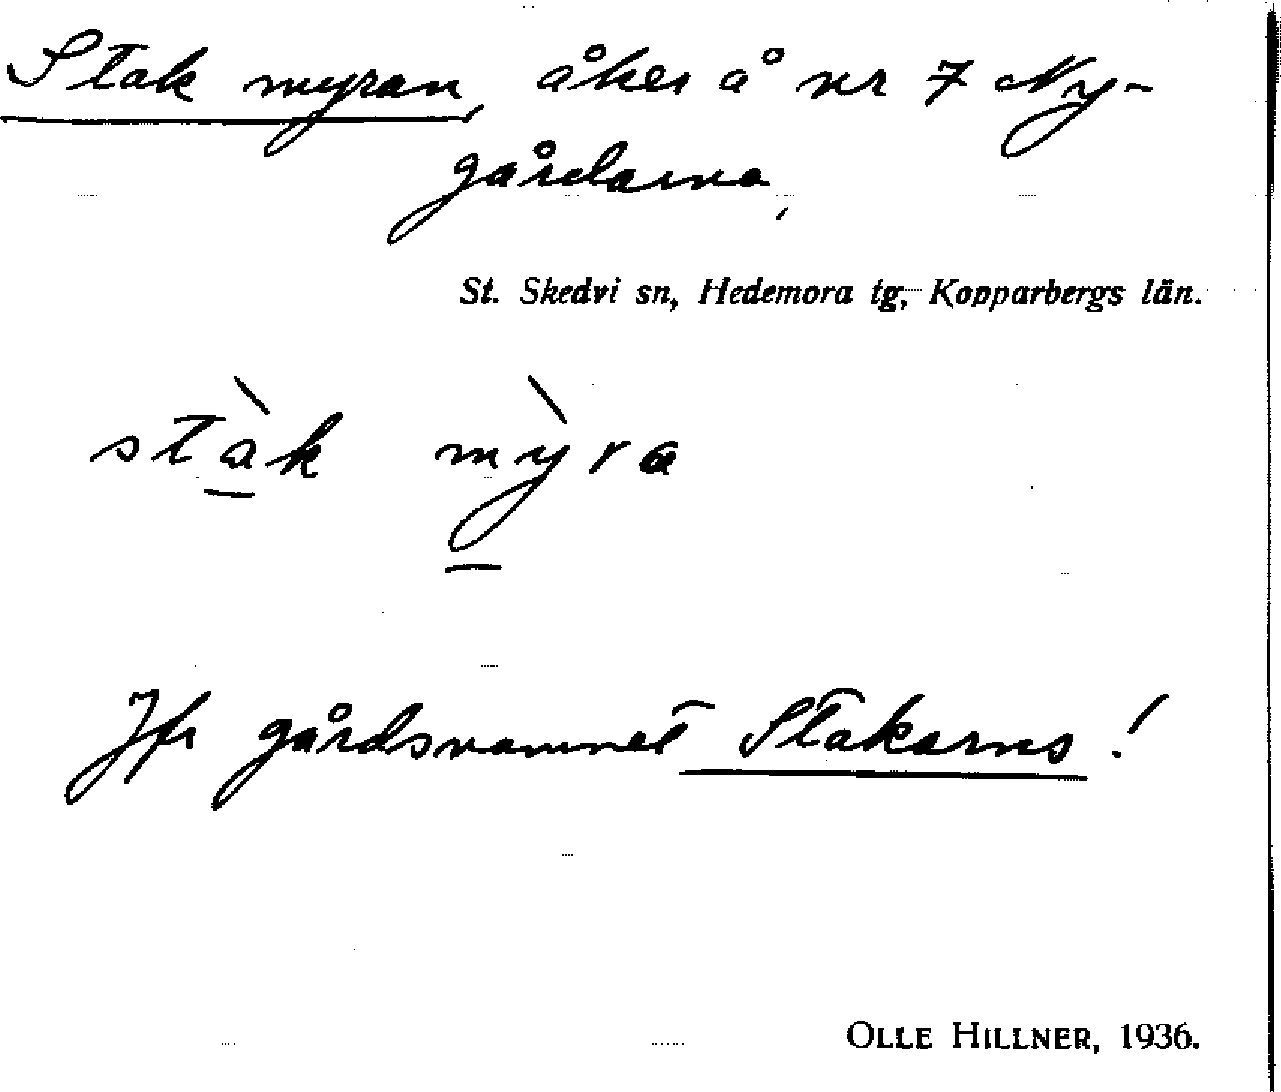 Stakmyran, åker å nr 7 Ny-
gårdarna,
St. Skedvi sn, Hedemora tg, Kopparbergs län.
stàk mỳra
Jfr gårdsnamnet Stakarns!
OLLE HILLNER, 1936.